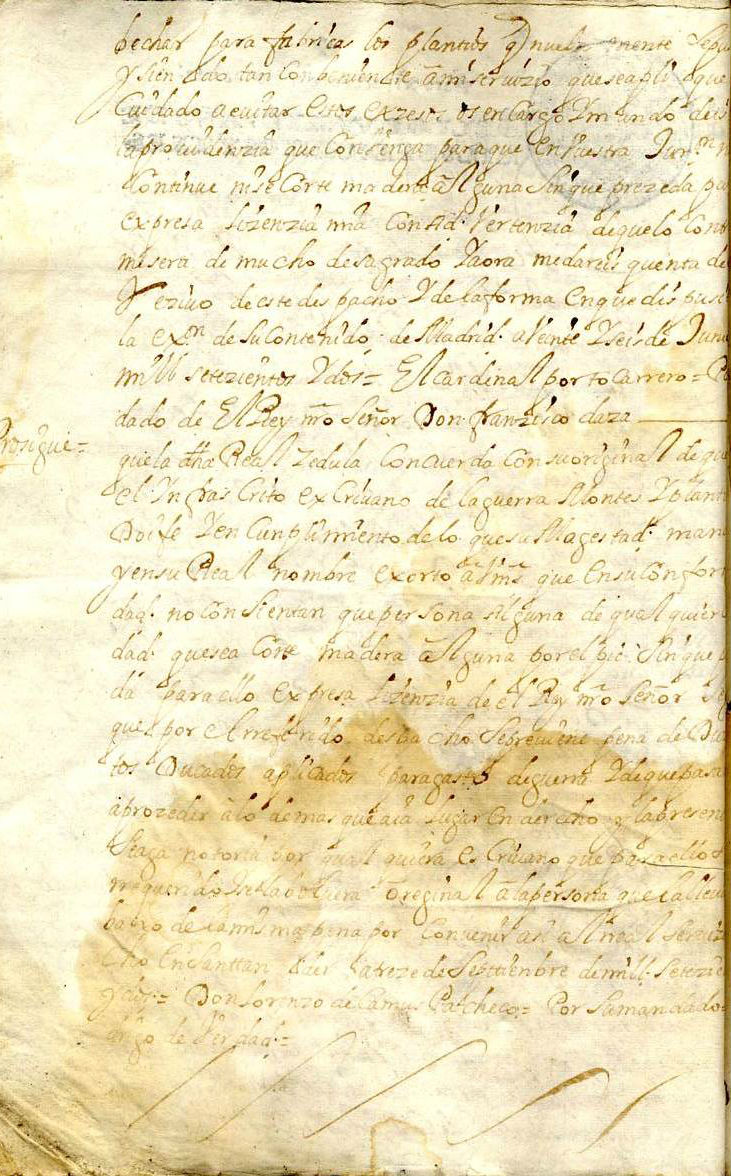 bechar para fabricas los plantios q nueba mente sepu
y sien dolo tan conbeniente a mi servizio que se apli que
Cuidado a evitar estos exzesos os encargo y mando deis
la providenzia que convenga para que en vuestra Jur.on n
Continue ni se Corte madera alguna sin que prezeda
expresa lizenzia mia con ad vertenzia de que lo Cont
me sera de mucho desagrado y aora me dareis quenta de
Rezivo de este des pacho y de la forma en que dispusi
la ex.on de su Contenido de Madrid a Veinte y seis de Juni
mill setezientos y dos = El cardinal porto carrero = Po
dado de El Rey nro Señor Don franzisco daza
Prosigue = que la dha Real Zedula Concuerda Con su original de que
el Yn fras Crito exCrivano de la guerra Montes y plant
Doi fe y en Cunplimiento de lo que su Magestad man
y en su Real nombre exorto a Vms que en su Confor
dad no Consientan que per sona alguna de qual quier
dad que sea Corte madera alguna por el pie sin que
da para ello expresa lizenzia de el Rey nro Señor
que por el rreferido des pacho se previene pena de Du
tos Ducados aplicados para gastos de guerra y de que pasa
a prozeder a lo demas que aia lugar en derecho y la presen
se aga notoria por qual quiera es Crivano que para ello
rrequerido y se la bolbera original a la persona que la lleva
baxo de la mis ma pena por convenir asi al rreal serviz
cho En Santtan der a treze de Septtienbre de mill Setezie
y dos = Don Lorenzo de Camus Pacheco = Por Su mandado =
de Verdad =